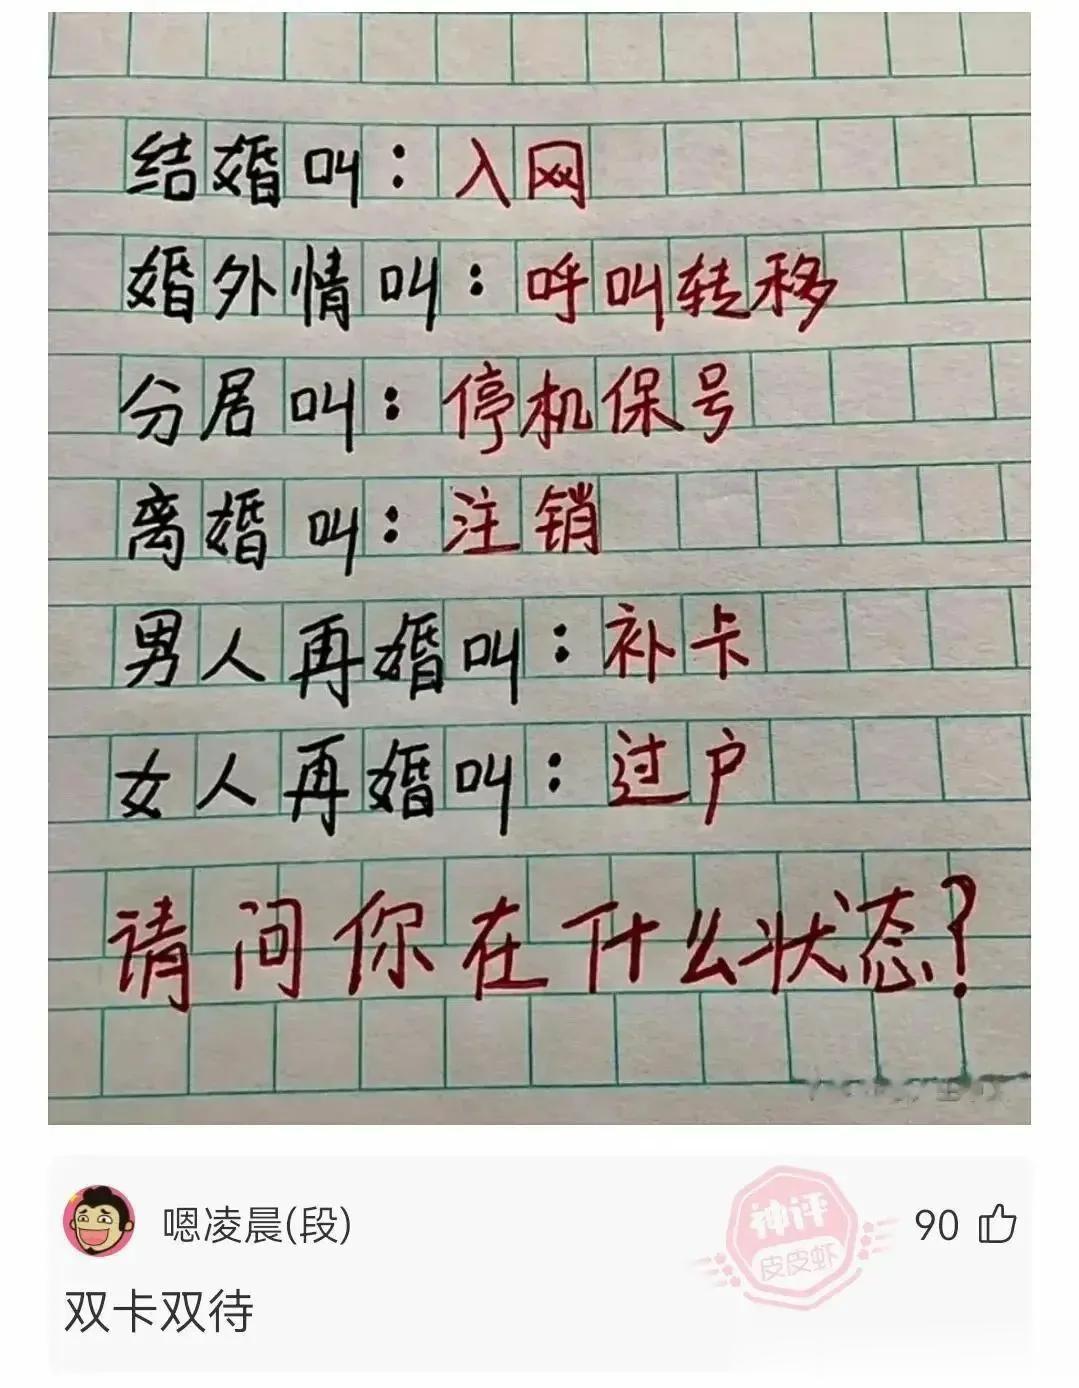 结婚叫：入网
婚外情叫：呼叫转移
分居叫：停机保号
离婚叫：注销
男人再婚叫：补卡
女人再婚叫：过户
请问你在什么状态？
嗯凌晨(段)
神评
皮皮虾
90
双卡双待